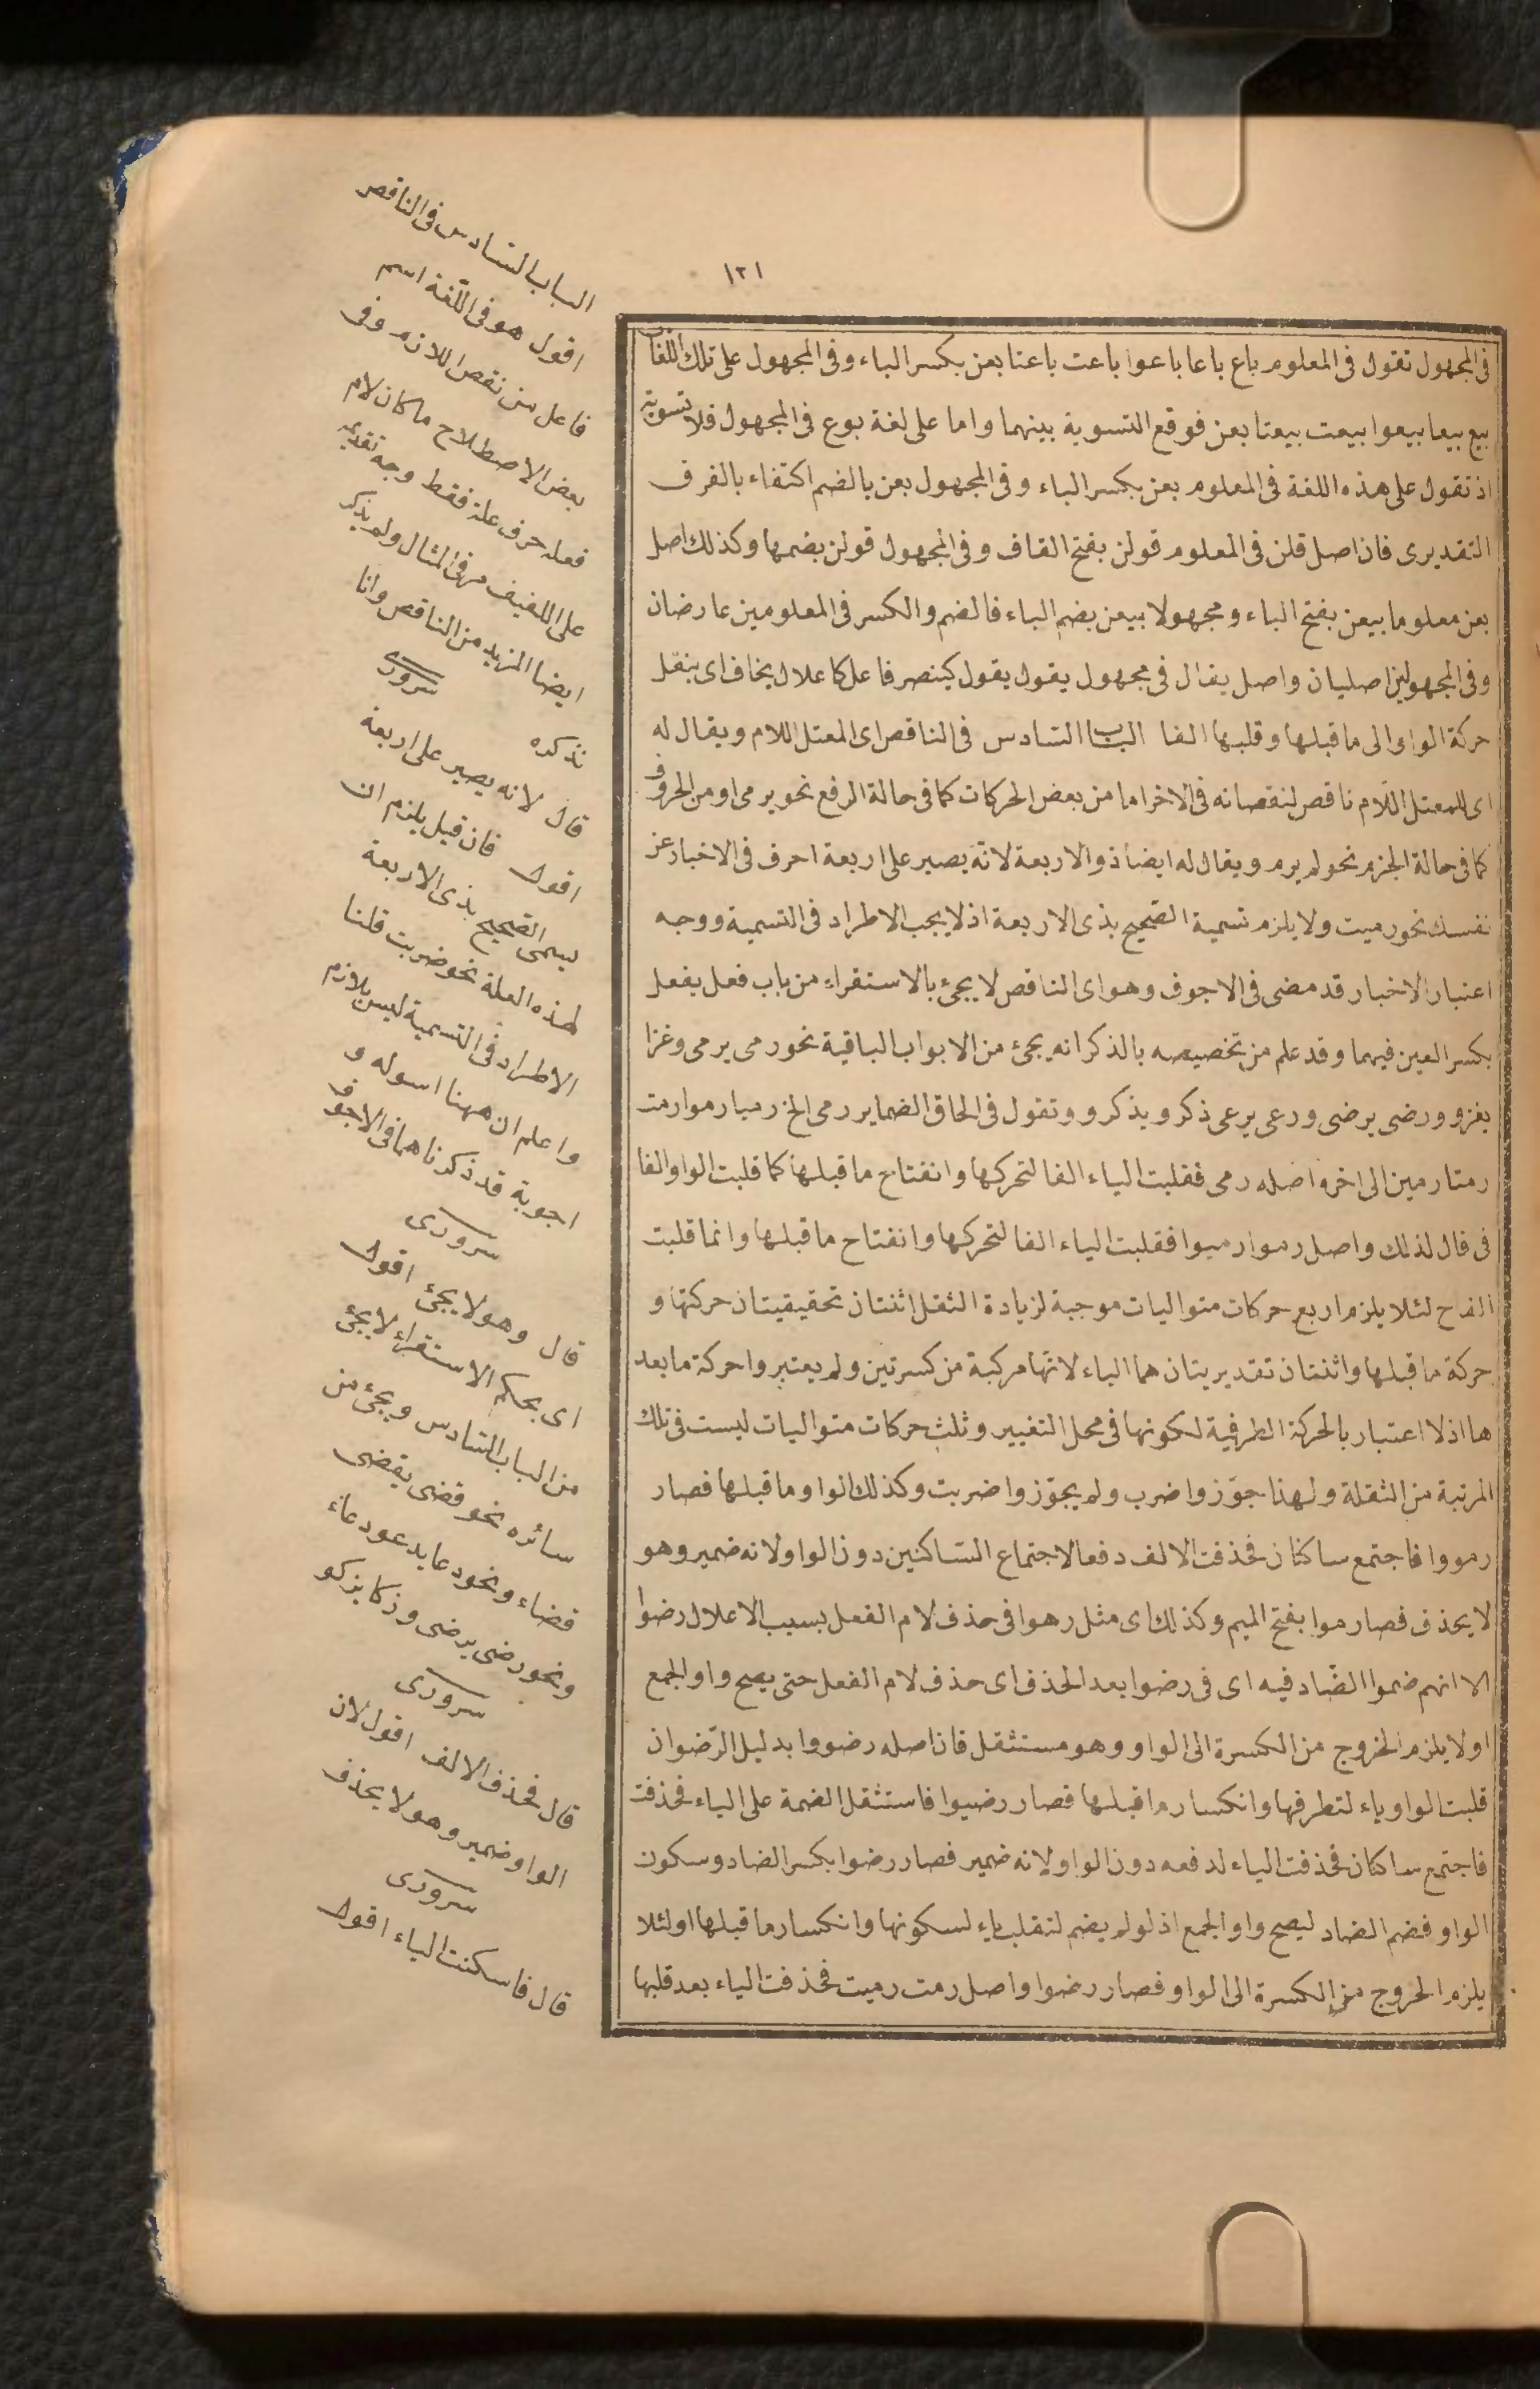 ١٢١
فى المجهول تقول فى المعلوم باع باعا باعوا باعت باعتا بعن بكسر الباء وفى المجهول على تلك اللغات
بيع بيعا بيعوا بيعت بيعتا بعن فوقع التسوية بينهما واما على لغة بوع فى المجهول فلا تسوية
اذ تقول على هذه اللغة فى المعلوم بعن بكسر الباء وفى المجهول بعن بالضم اكتفاء بالفرق
التقديرى فان اصل قلن فى المعلوم قولن بفتح القاف وفى المجهول قولن بضمها وكذلك اصل
بعن معلوما بيعن بفتح الباء ومجهولا بيعن بضم الباء فالضم والكسر فى المعلومين عارضان
وفى المجهولين اصليان واصل يقال فى مجهول يقول يقول كينصر فاعل كاعلال يخاف اى ينقل
حركة الواو الى ما قبلها وقلبها الفا الباب السادس فى الناقص اى المعتل اللام ويقال له
اى للمعتل اللام ناقص لنقصانه فى الاخر اما من بعض الحركات كما فى حالة الرفع نحو يرمى او من الحروف
كما فى حالة الجزم نحو لم يرم ويقال له ايضا ذو الاربعة لانه يصير على اربعة احرف فى الاخبار عن
نفسك نحو رميت ولا يلزم تسمية الصحيح بذى الاربعة اذ لا يجب الاطراد فى التسمية ووجه
اعتبار الاخبار قد مضى فى الاجوف وهو اى الناقص لا يجئ بالاستقراء من باب فعل يفعل
بكسر العين فيهما وقد علم من تخصيصه بالذكر انه يجئ من الابواب الباقية نحو رمى يرمى وغزا
يغزو ورضى يرضى ورعى يرعى ذكر ويذكر وو تقول فى الحاق الضماير رمى الخ رميا رموا رمت
رمتا رمين الى اخره اصله رمى فقلبت الياء الفا لتحركها وانفتاح ما قبلها كما قلبت الواو الفا
فى قال لذلك واصل رموا رميوا فقلبت الياء الفا لتحركها وانفتاح ما قبلها وانما قلبت
الفا ح لئلا يلزم اربع حركات متواليات موجبة لزيادة الثقل اثنتان تحقيقيتان حركتها و
حركة ما قبلها واثنتان تقديريتان هما الياء لانها مركبة من كسرتين ولم يعتبروا حركة ما بعد
ها اذ لا اعتبار بالحركة الطرفية لكونها فى محل التغيير وثلث حركات متواليات ليست فى تلك
المرتبة من الثقلة ولهذا جوّزوا ضرب ولم يجوّزوا ضربت وكذلك الواو وما قبلها فصار
رمووا فاجتمع ساكنان فحذفت الالف دفعا لاجتماع الساكنين دون الواو لانه ضمير وهو
لا يحذف فصار موا بفتح الميم وكذلك اى مثل رموا فى حذف لام الفعل بسبب الاعلال رضوا
الا انهم ضموا الضاد فيه اى فى رضوا بعد الحذف اى حذف لام الفعل حتى يصح واو الجمع
او لا يلزم الخروج من الكسرة الى الواو وهو مستثقل فان اصله رضووا بدليل الرّضوان
قلبت الواو ياء لتطرفها وانكسار ما قبلها فصار رضيوا فاستثقل الضمة على الياء فحذفت
فاجتمع ساكنان فحذفت الياء لدفعه دون الواو لانه ضمير فصار رضوا بكسر الضاد وسكون
الواو فضم الضاد ليصح واو الجمع اذ لو لم يضم لتقلب ياء لسكونها وانكسار ما قبلها او لئلا
يلزم الخروج من الكسرة الى الواو فصار رضوا واصل رمت رميت فحذفت الياء بعد قلبها
الباب السادس فى الناقص
اقول هو فى اللغة اسم
فاعل من نقص اللازم وفى
بعض الاصطلاح ما كان لام
فعله حرف علة فقط وجه تقديمه
على اللفيف مر فى المثال ولم يذكر
ايضا المزيد من الناقص وانا
نذكره سرورى
قال لانه يصير على اربعة
اقول فان قيل يلزم ان
يسمى الصحيح بذى الاربعة
لهذه العلة نحو ضربت قلنا
الاطراد فى التسمية ليس بلازم
واعلم ان ههنا اسوله و
اجوبة قد ذكرناهما فى الاجوف
سرورى
قال وهو لا يجئ اقول
اى بحكم الاستقراء لا يجئ
من الباب السادس ويجئ من
سائره نحو قضى يقضى
قضاء ونحو دعا يدعو دعاء
ونحو رضى يرضى وزكا يزكو
سرورى
قال فحذف الالف اقول لان
الواو ضمير وهو لا يحذف
سرورى
قال فاسكنت الياء اقول